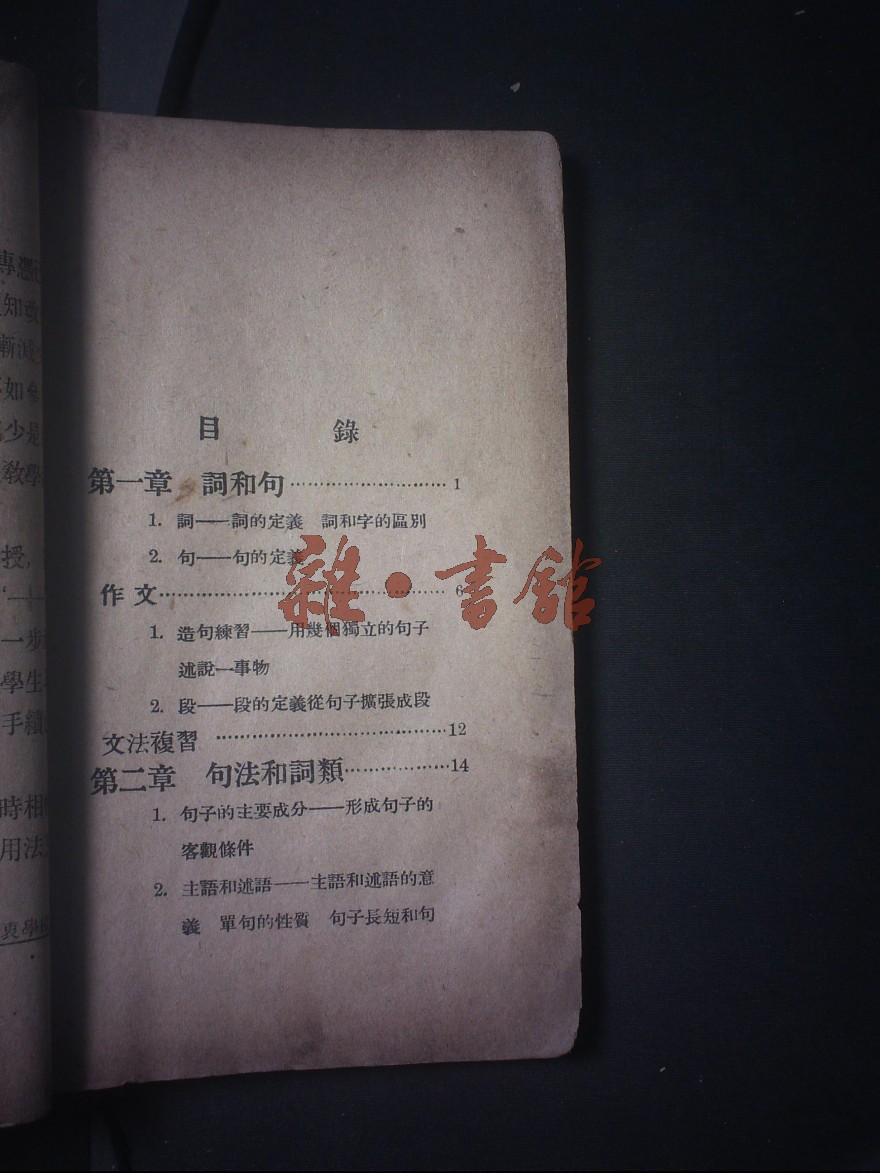 目錄
第一章 詞和句…………………… 1
1. 詞——詞的定義 詞和字的區別
2. 句——句的定義
作文…………………………………… 6
1. 造句練習——用幾個獨立的句子
述說一事物
2. 段——段的定義從句子擴張成段
文法複習 ……………………………12
第二章 句法和詞類……………14
1. 句子的主要成分——形成句子的
客觀條件
2. 主語和述語——主語和述語的意
義 單句的性質 句子長短和句
雜·書館
知改
漸減
如參
少是
教學
授,
一步
學生
手續
時相
用法